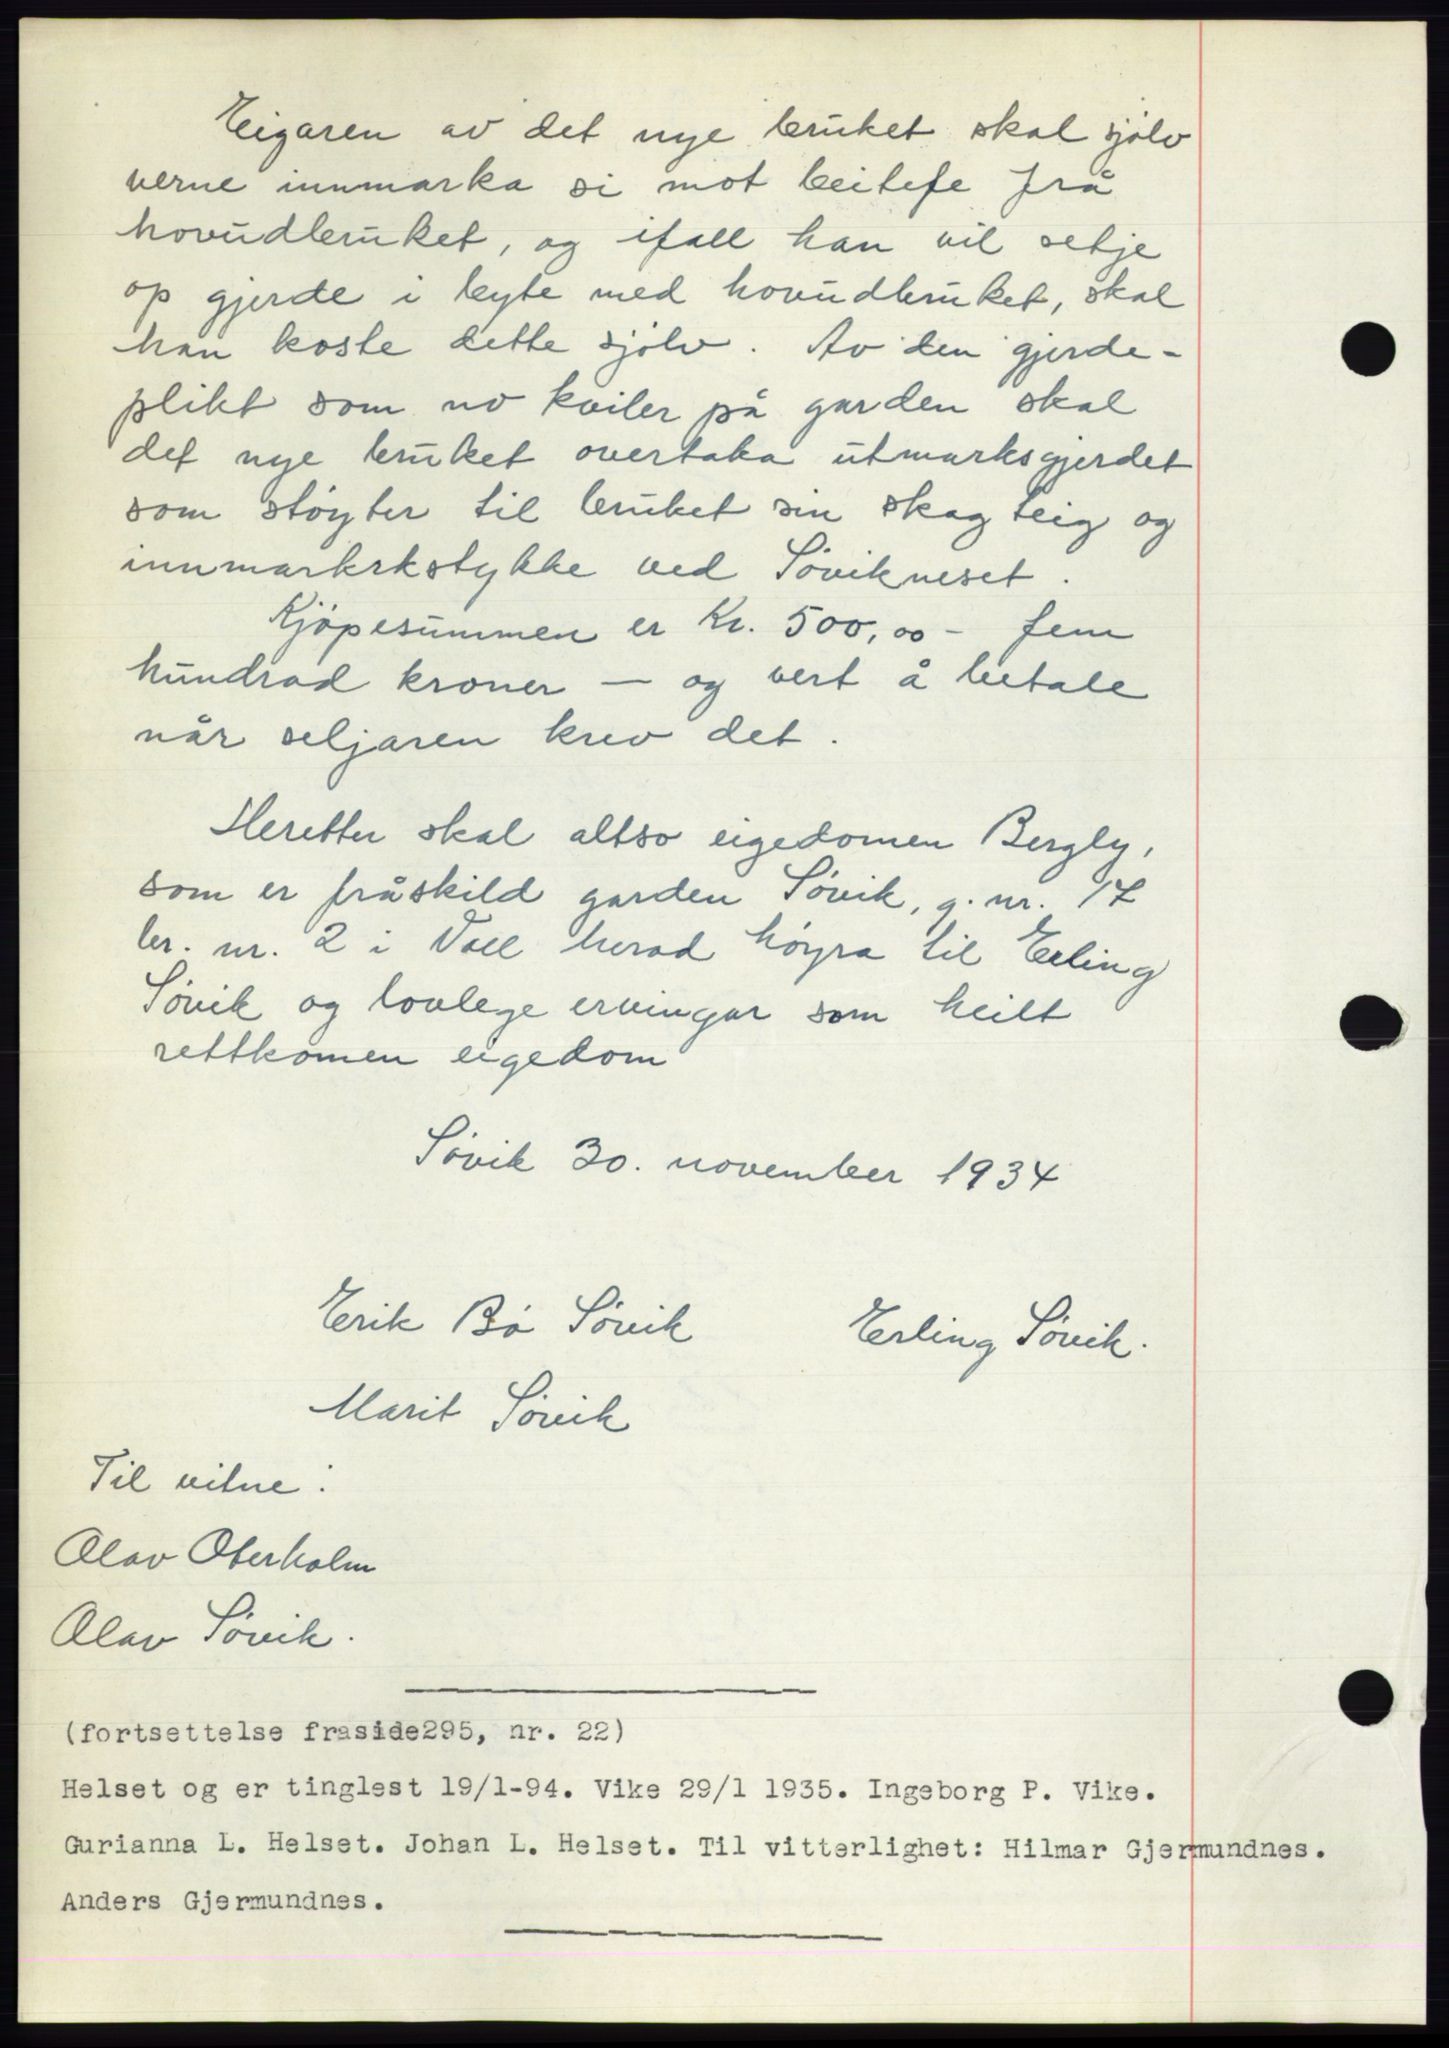 Eigaren av det nye bruket skal sjølv
verne innmarka si mot beitefe frå
hovudbruket, og ifall han vil setje
op gjerde i byte med hovudbruket, skal
han koste dette sjølv. Av den gjerde-
plikt som no kviler på garden skal
det nye bruket overtaka utmarksgjerdet
som støyter til bruket sin skogteig og
innmarkrkstykke ved Søvikneset.
Kjøpesummen er Kr. 500,00 - fem
hundrad kroner — og vert å betale
når seljaren krev det.
Heretter skal altso eigedomen Bergly,
som er fråskild garden Søvik, g. nr. 17
br. nr. 2 i Voll herad høyra til Erling
Søvik og lovlege ervingar som heilt
rettkomen eigedom
Søvik 30. november 1934
Erik Bø Søvik Erling Søvik.
Marit Søvik
Til vitne:
Olav Oterholm
Olav Søvik.
(fortsettelse fraside295, nr. 22)
Helset og er tinglest 19/1-94. Vike 29/1 1935. Ingeborg P. Vike.
Gurianna L. Helset. Johan L. Helset. Til vitterlighet: Hilmar Gjermundnes.
Anders Gjermundnes.